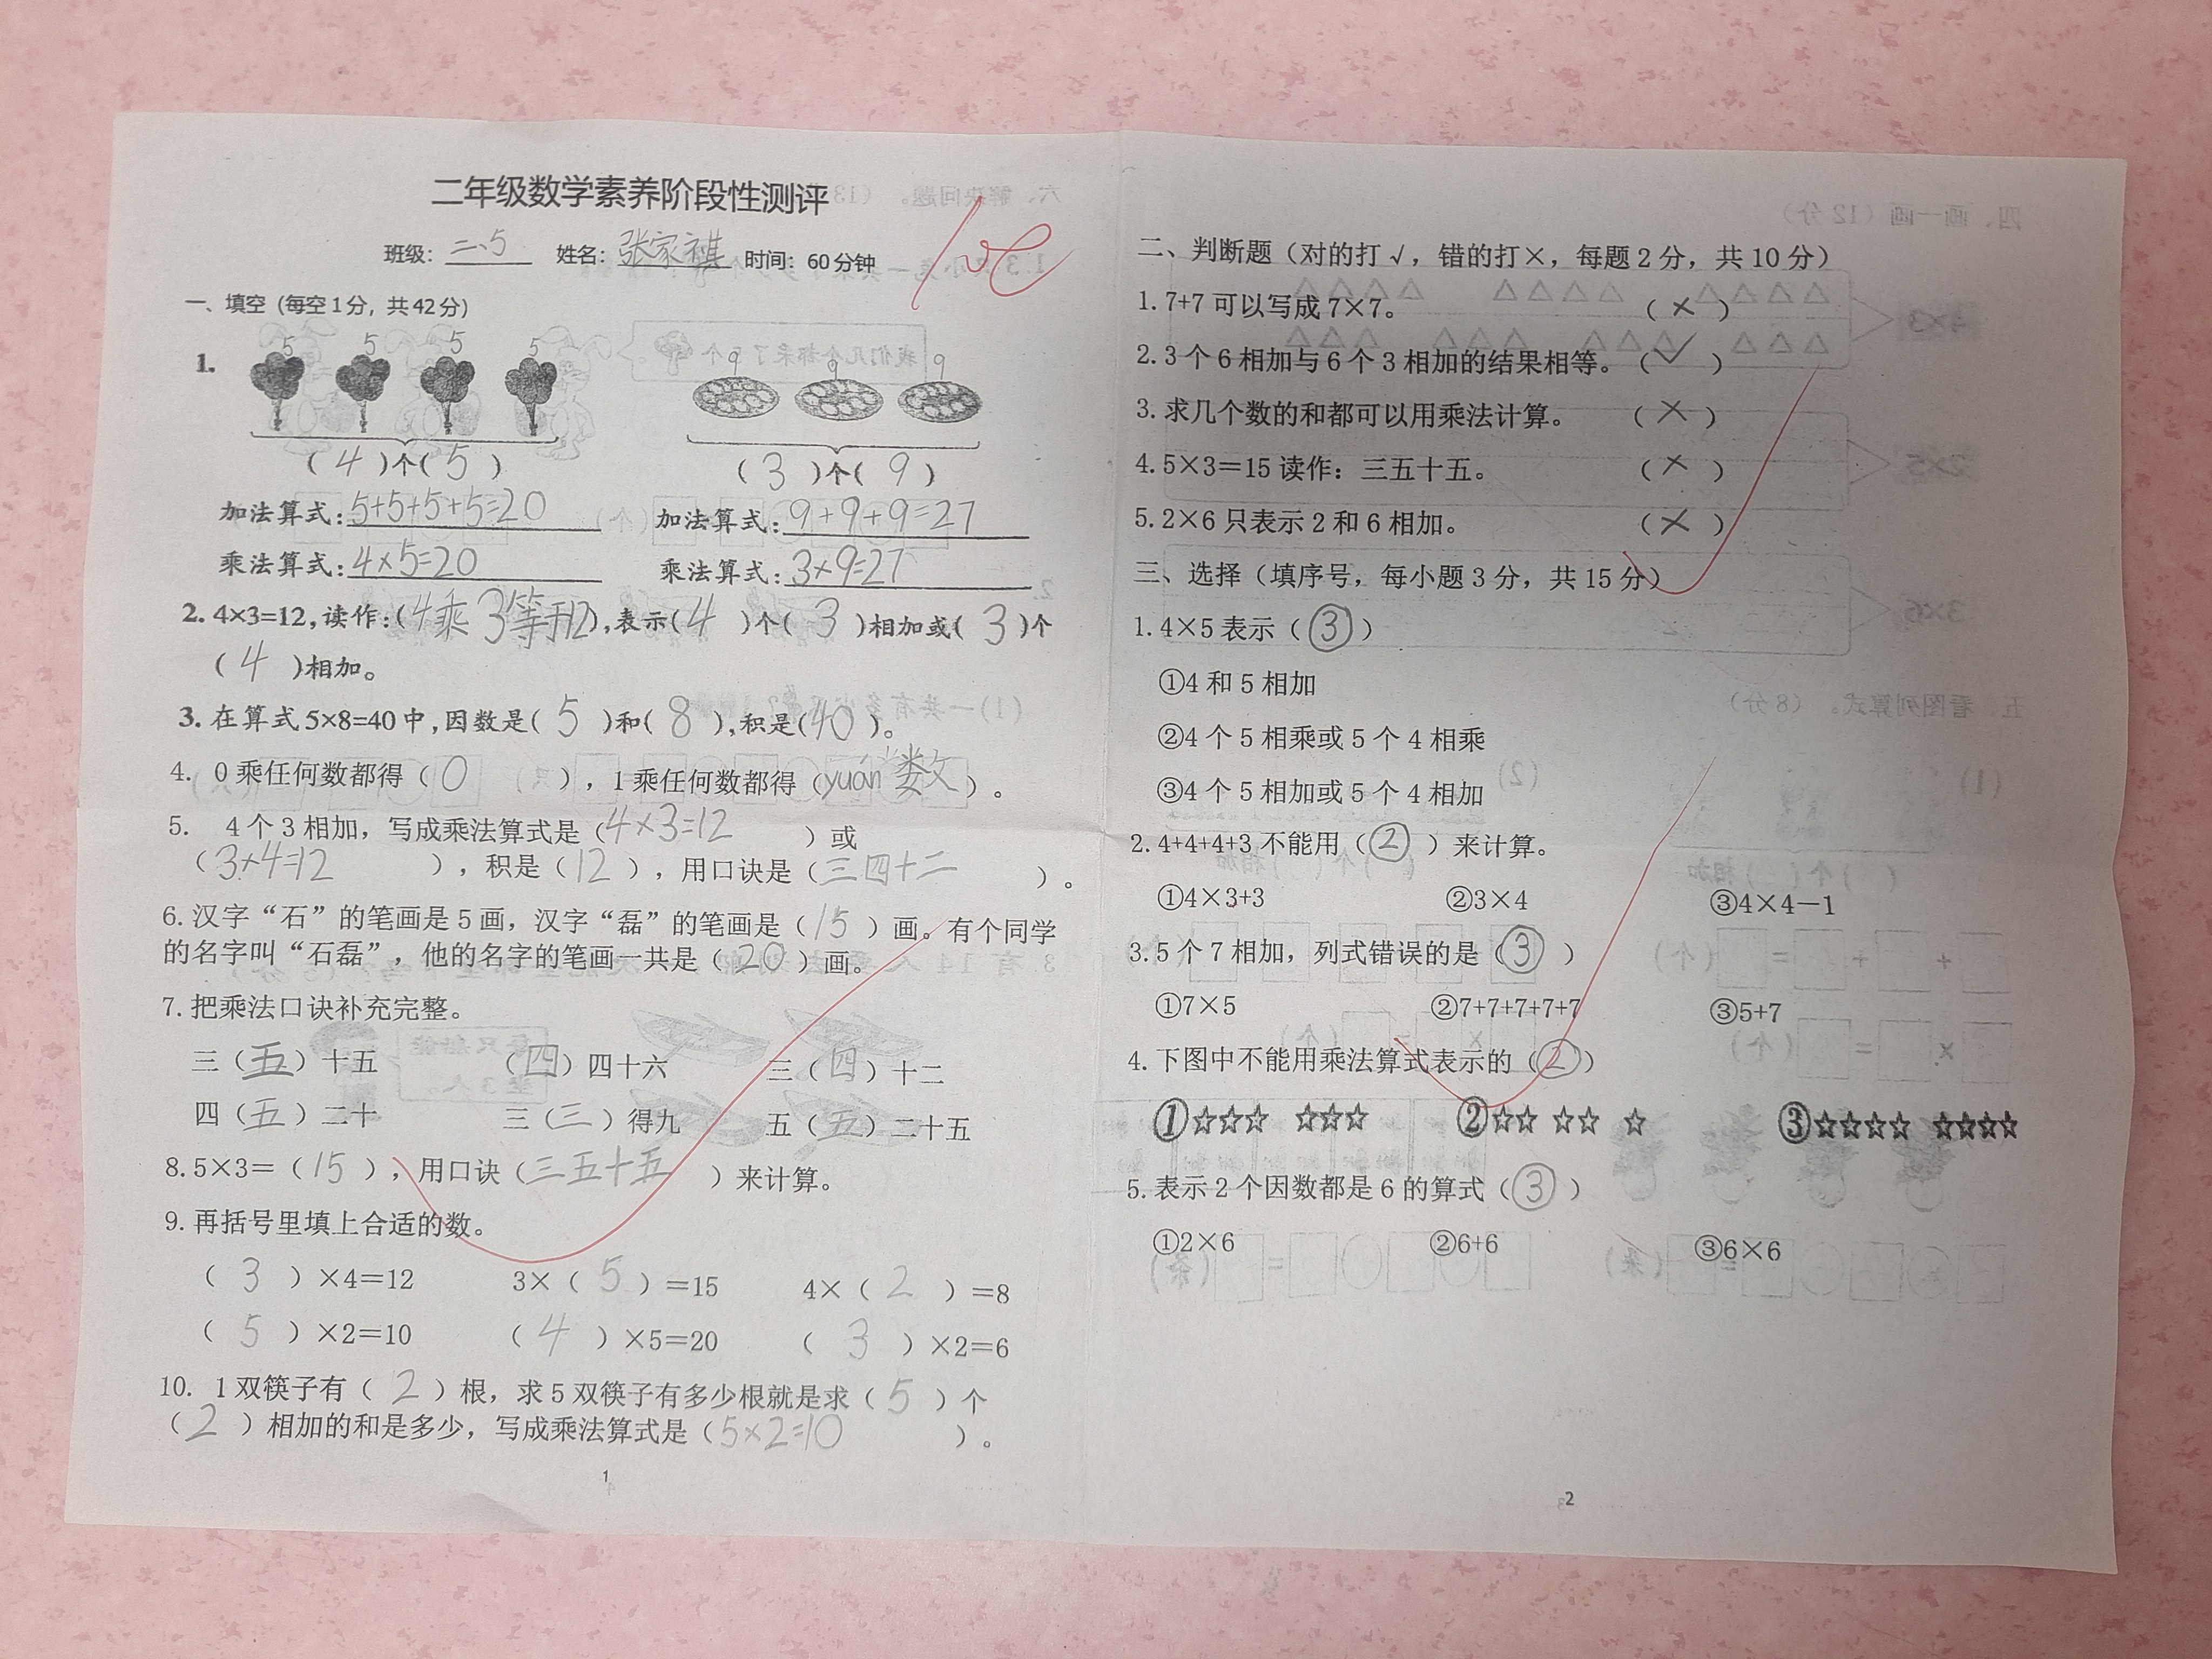 二年级数学素养阶段性测评
班级：二、5 姓名：张家祺 时间：60分钟
100
一、填空（每空1分，共42分）
5 5 5 5 9 9 9
1.
（ 4 ）个（ 5 ） （ 3 ）个（ 9 ）
加法算式：5+5+5+5=20 加法算式：9+9+9=27
乘法算式：4×5=20 乘法算式：3×9=27
2. 4×3=12，读作：（4乘3等于12），表示（ 4 ）个（ 3 ）相加或（ 3 ）个
（ 4 ）相加。
3. 在算式5×8=40中，因数是（ 5 ）和（ 8 ），积是（40）。
4. 0乘任何数都得（ 0 ），1乘任何数都得（yuán 数）。
5. 4个3相加，写成乘法算式是（4×3=12）或
（3×4=12），积是（12），用口诀是（三四十二）。
6.汉字“石”的笔画是5画，汉字“磊”的笔画是（15）画。有个同学
的名字叫“石磊”，他的名字的笔画一共是（20）画。
7.把乘法口诀补充完整。
三（五）十五 （四）四十六 三（四）十二
四（五）二十 三（三）得九 五（五）二十五
8.5×3＝（15），用口诀（三五十五）来计算。
9.再括号里填上合适的数。
（ 3 ）×4＝12 3×（ 5 ）＝15 4×（ 2 ）＝8
（ 5 ）×2＝10 （ 4 ）×5＝20 （ 3 ）×2＝6
10. 1双筷子有（ 2 ）根，求5双筷子有多少根就是求（ 5 ）个
（ 2 ）相加的和是多少，写成乘法算式是（5×2=10）。
1
二、判断题（对的打√，错的打×，每题2分，共10分）
1.7+7可以写成7×7。 （ × ）
2.3个6相加与6个3相加的结果相等。（ √ ）
3.求几个数的和都可以用乘法计算。 （ × ）
4.5×3＝15读作：三五十五。 （ × ）
5.2×6只表示2和6相加。 （ × ）
三、选择（填序号，每小题3分，共15分）
1.4×5表示（ ③ ）
①4和5相加
②4个5相乘或5个4相乘
③4个5相加或5个4相加
2.4+4+4+3不能用（ ② ）来计算。
①4×3+3 ②3×4 ③4×4－1
3.5个7相加，列式错误的是（ ③ ）
①7×5 ②7+7+7+7+7 ③5+7
4.下图中不能用乘法算式表示的（ ② ）
①☆☆☆ ☆☆☆ ②☆☆ ☆☆ ☆ ③☆☆☆☆ ☆☆☆☆
5.表示2个因数都是6的算式（ ③ ）
①2×6 ②6+6 ③6×6
2